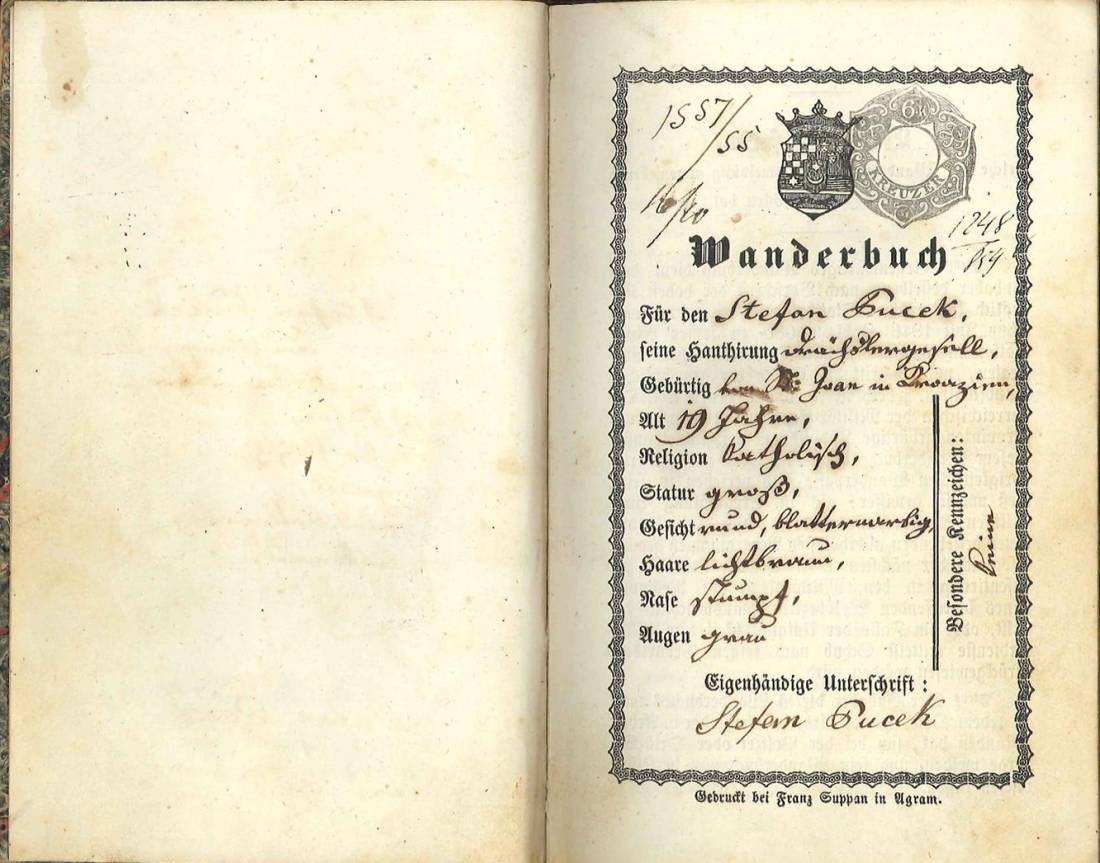 1557/55
6 k
KREUZER
1248
Wanderbuch
Für den Stefan Pucek,
seine Hanthirung Drächslergesell,
Gebürtig von St. Joan in Kroazien,
Alt 19 Jahre,
Religion katholisch,
Statur groß,
Gesicht rund, blatternarbig,
Haare lichtbraun,
Nase stumpf,
Augen grau
Besondere Kennzeichen:
keine
Eigenhändige Unterschrift:
Stefan Pucek
Gedruckt bei Franz Suppan in Agram.